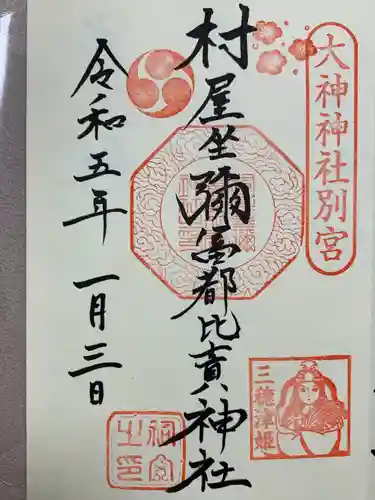 大神神社別宮
村屋坐彌冨都比賣神社
三穂津姫
令和五年一月三日
祠官之印